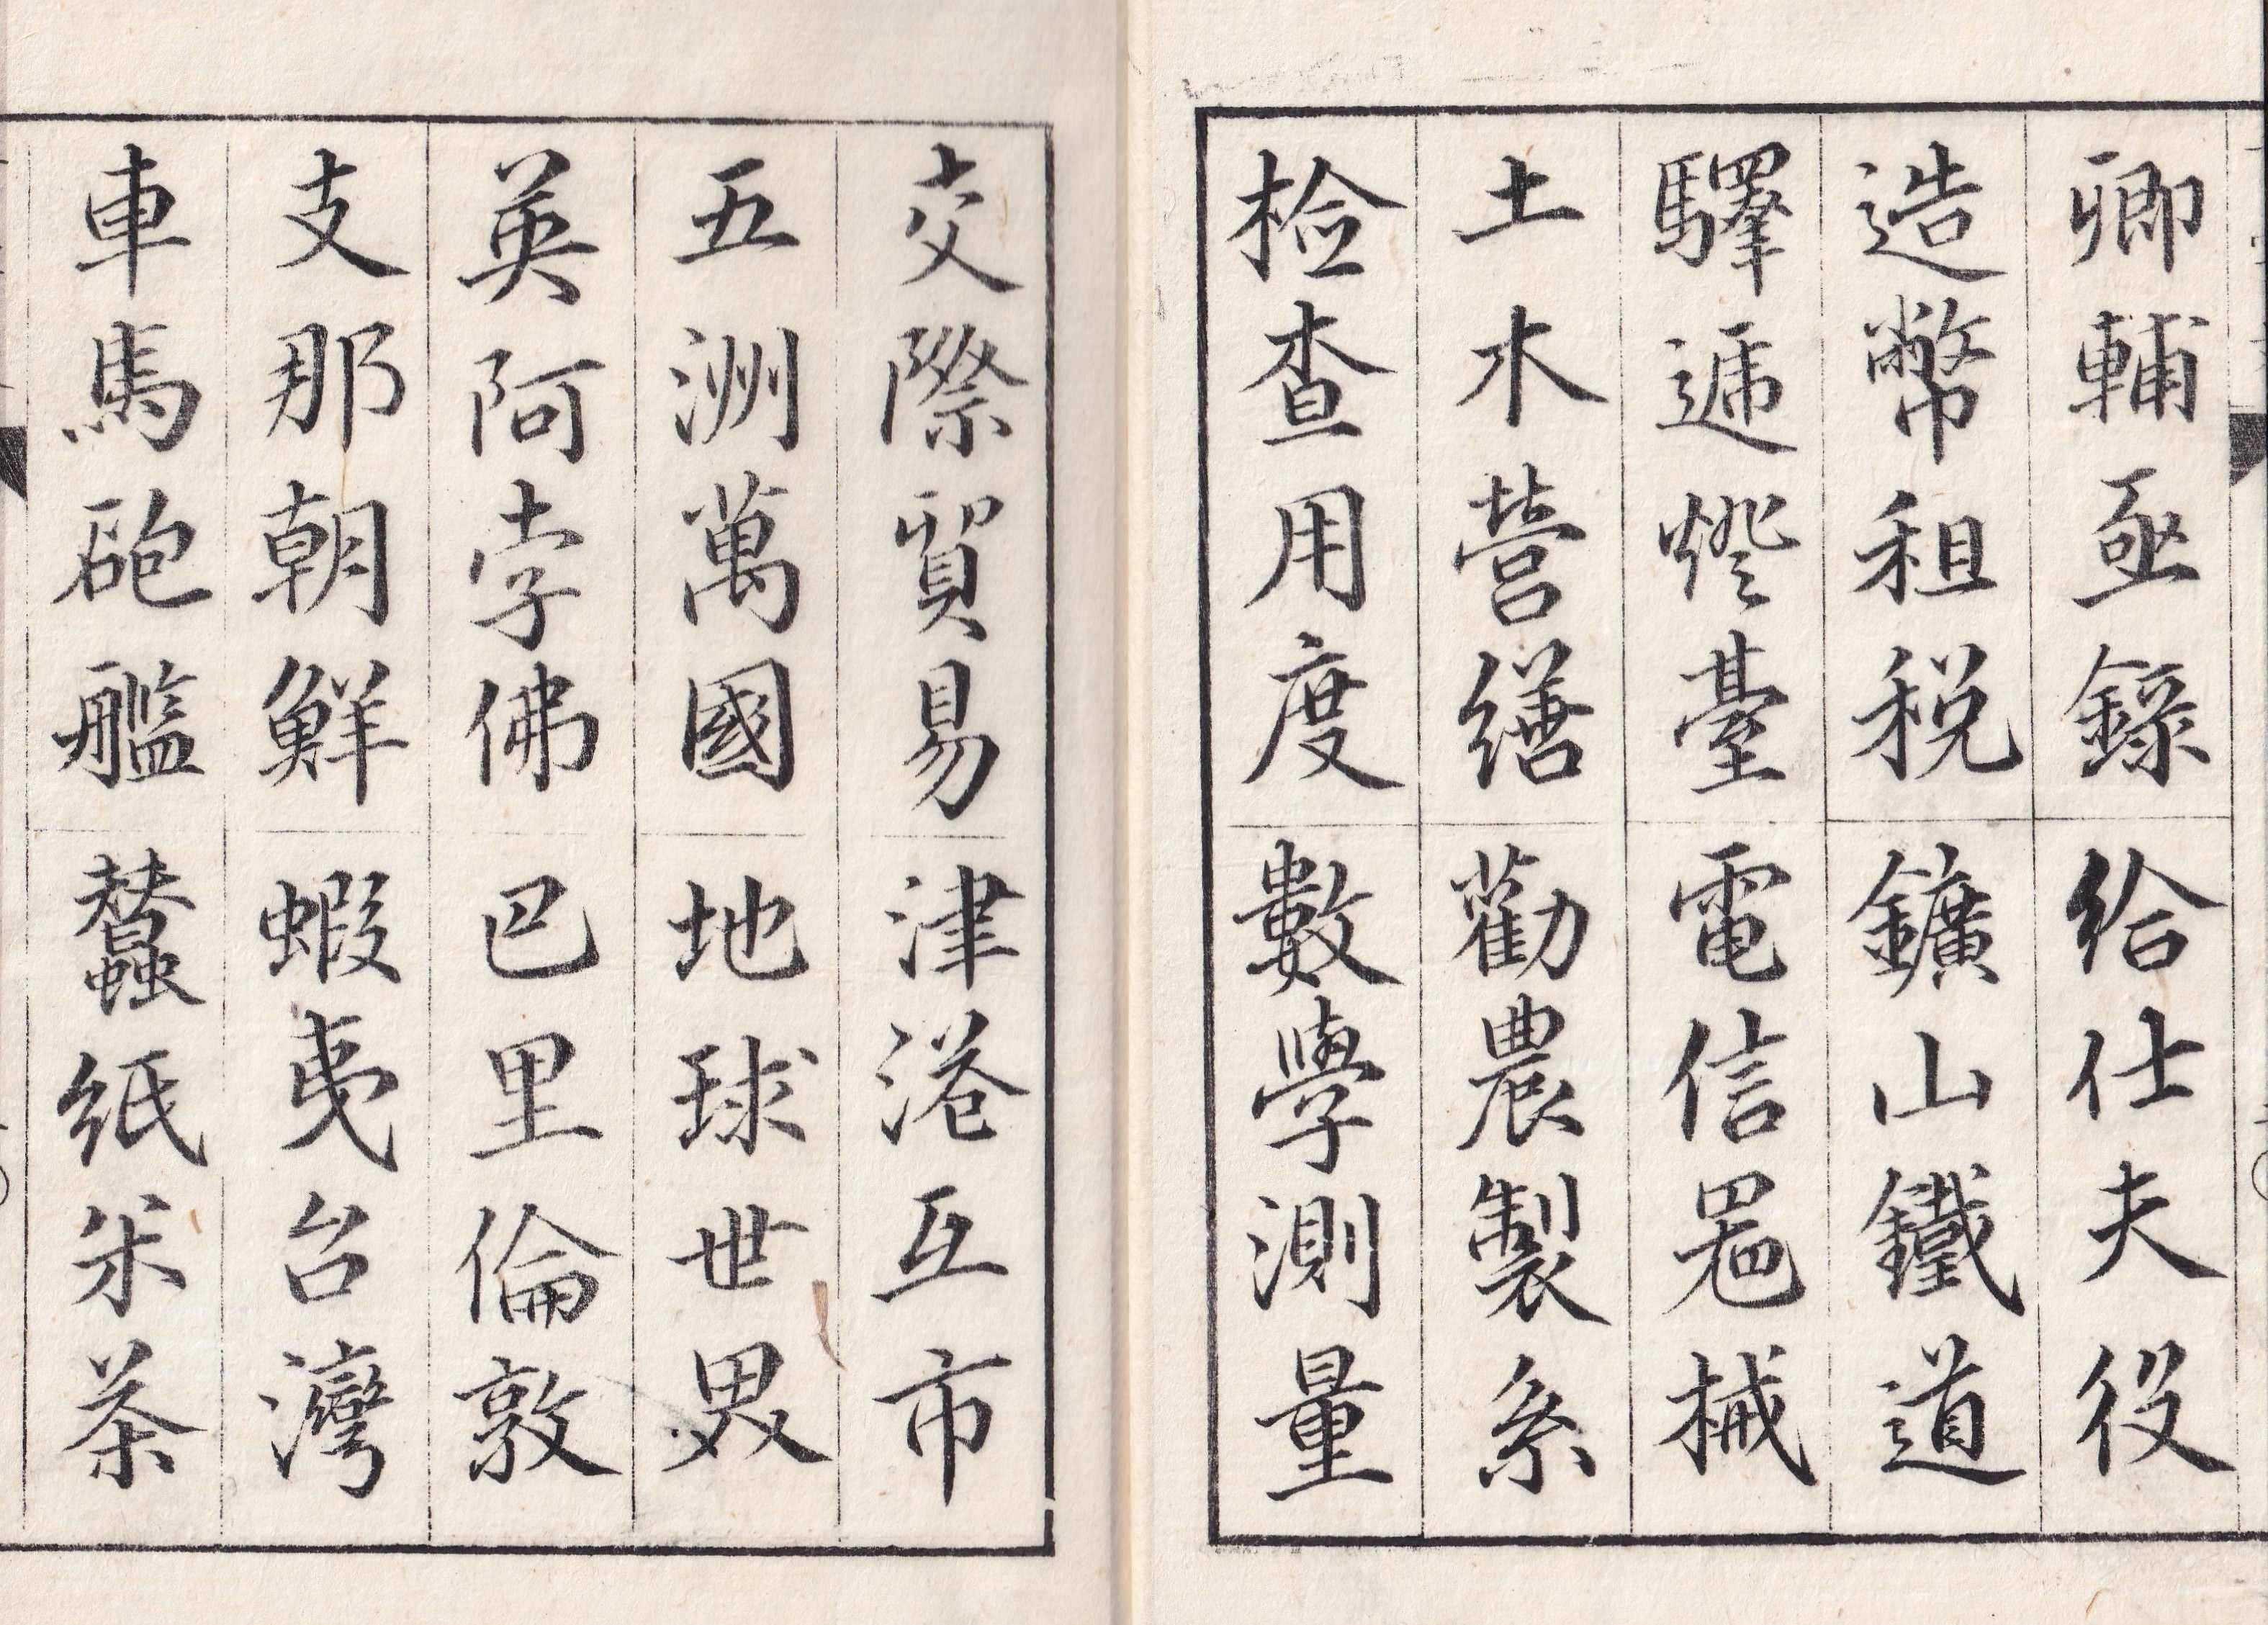 卿輔丞錄給仕夫役
造幣租税鑛山鐵道
驛遞燈臺電信噐械
土木營繕勸農製糸
檢查用度數學測量
交際貿易津港互市
五洲萬國地球世界
英阿孛佛巴里倫敦
支那朝鮮蝦夷台灣
車馬砲艦蠶紙米茶